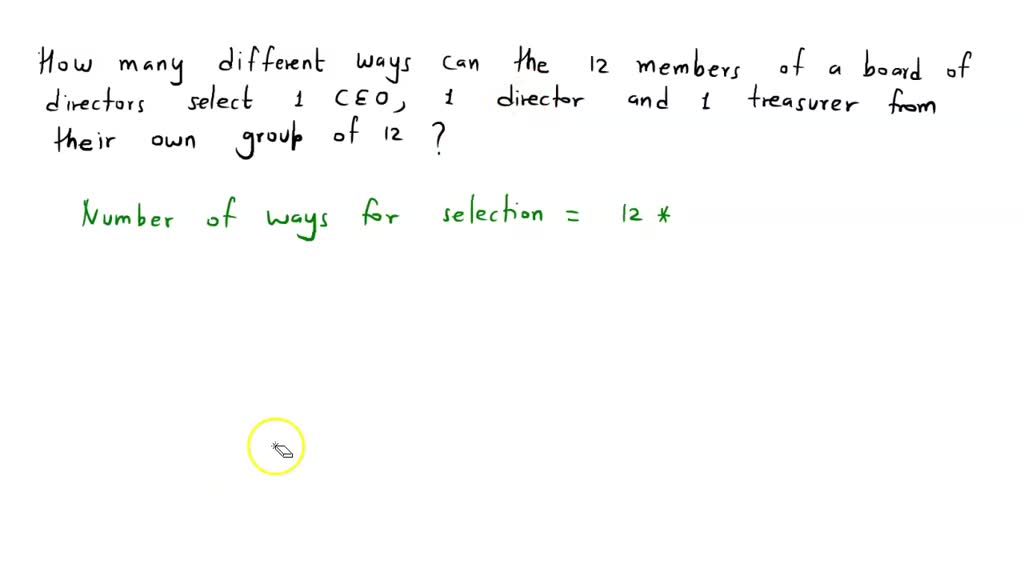 How many different ways can the 12 members of a board of
directors select 1 CEO, 1 director and 1 treasurer from
their own group of 12 ?
Number of ways for selection = 12 *